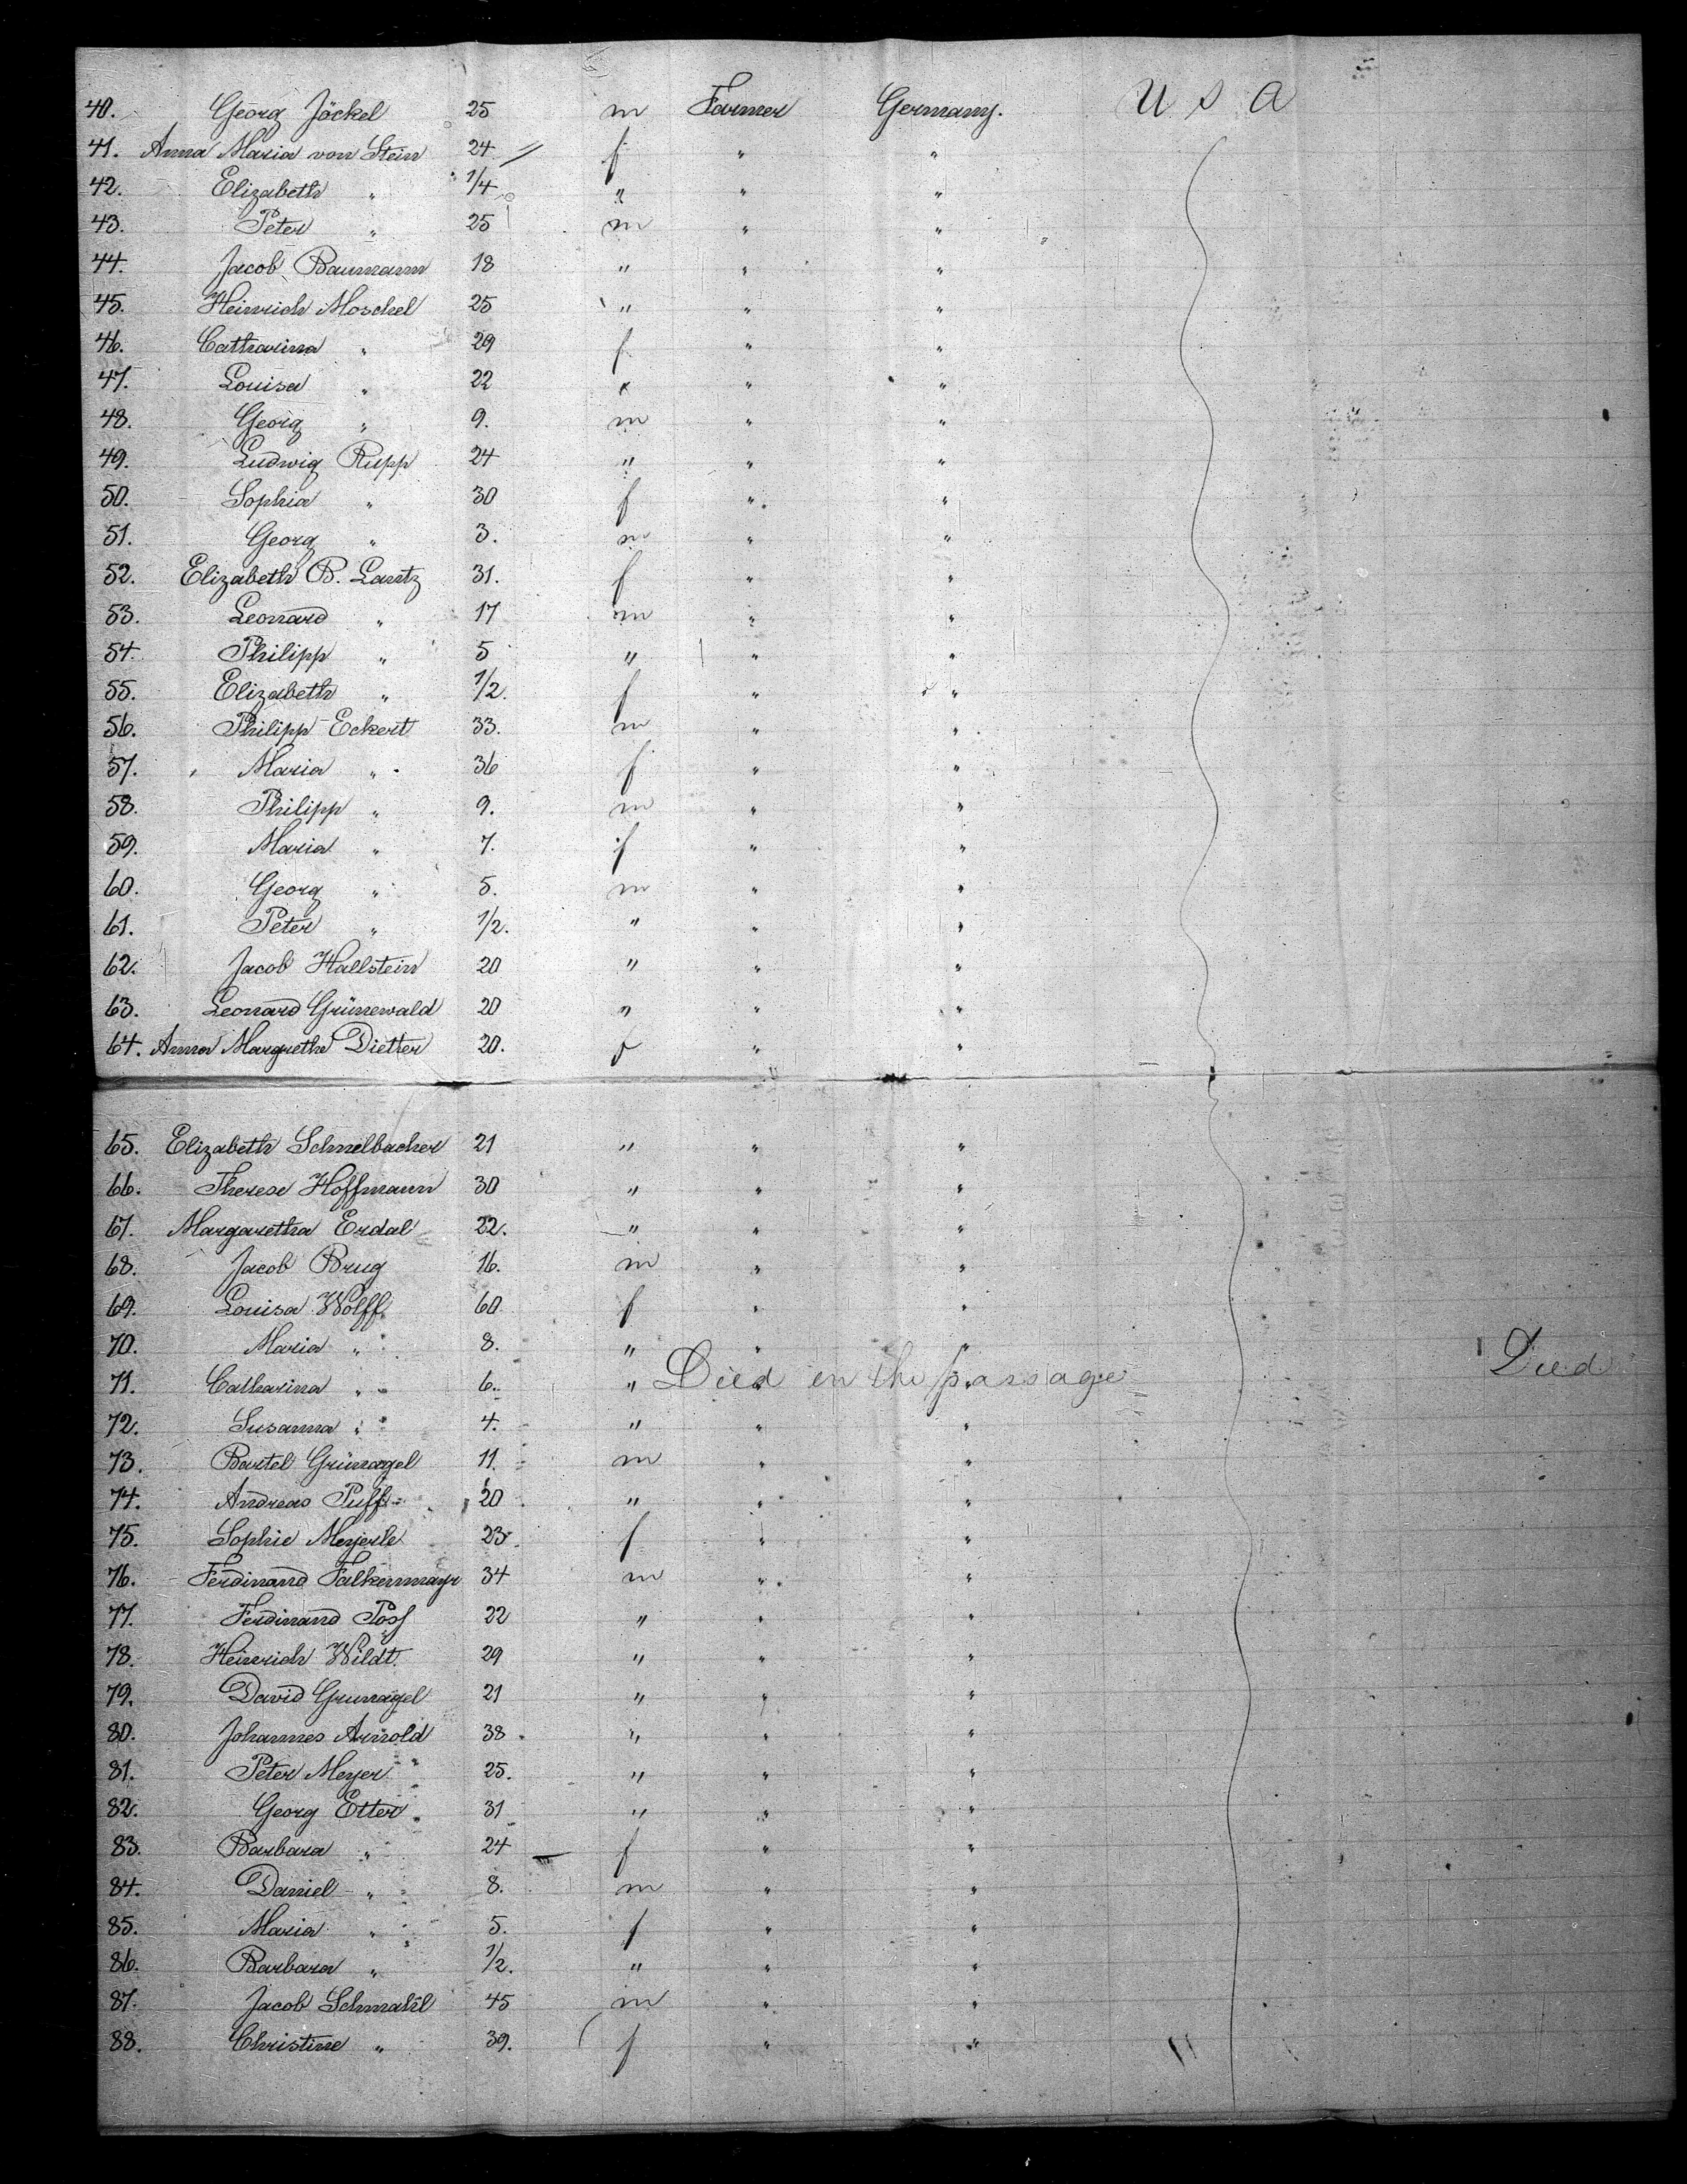 40. Georg Jöckel 25 m Farmer Germany. U S A
41. Anna Maria von Stein 24 f " "
42. Elizabeth " 1/4 " " "
43. Peter " 25 m " "
44. Jacob Baumann 18 " " "
45. Heinrich Moschel 25 " " "
46. Catharina " 29 f " "
47. Louisa " 22 " " "
48. Georg " 9. m " "
49. Ludwig Rupp 24 " " "
50. Sophia " 30 f " "
51. Georg " 3. m " "
52. Elizabeth B. Lantz 31. f " "
53. Leonard " 17 m " "
54. Philipp " 5 " " "
55. Elizabeth " 1/2. f " "
56. Philipp Eckert 33. m " "
57. Maria " 36 f " "
58. Philipp " 9. m " "
59. Maria " 7. f " "
60. Georg " 5. m " "
61. Peter " 1/2. " " "
62. Jacob Hallstein 20 " " "
63. Leonard Grünewald 20 " " "
64. Anna Margrethe Dietter 20. f " "
65. Elizabeth Schnelbacher 21 " " "
66. Therese Hoffmann 30 " " "
67. Margaretha Erdal 22. " " "
68. Jacob Brug 16. m " "
69. Louisa Wolff 60 f " "
70. Maria " 8. " " "
71. Catharina " 6. " Died on the passage " Died
72. Susanna " 4. " " "
73. Bartel Grünagel 11. m " "
74. Andreas Puff 20 " " "
75. Sophie Meyerle 23. f " "
76. Ferdinand Falkenmayr 34 m " "
77. Ferdinand Poss 22 " " "
78. Heinrich Wildt. 29 " " "
79. David Grunagel 21 " " "
80. Johannes Arnold 38 " " "
81. Peter Meyer 25. " " "
82. Georg Etter 31 " " "
83. Barbara " 24 f " "
84. Daniel " 8. m " "
85. Maria " 5. f " "
86. Barbara " 1/2. " " "
87. Jacob Schmahl 45 m " "
88. Christine " 39. f " " "